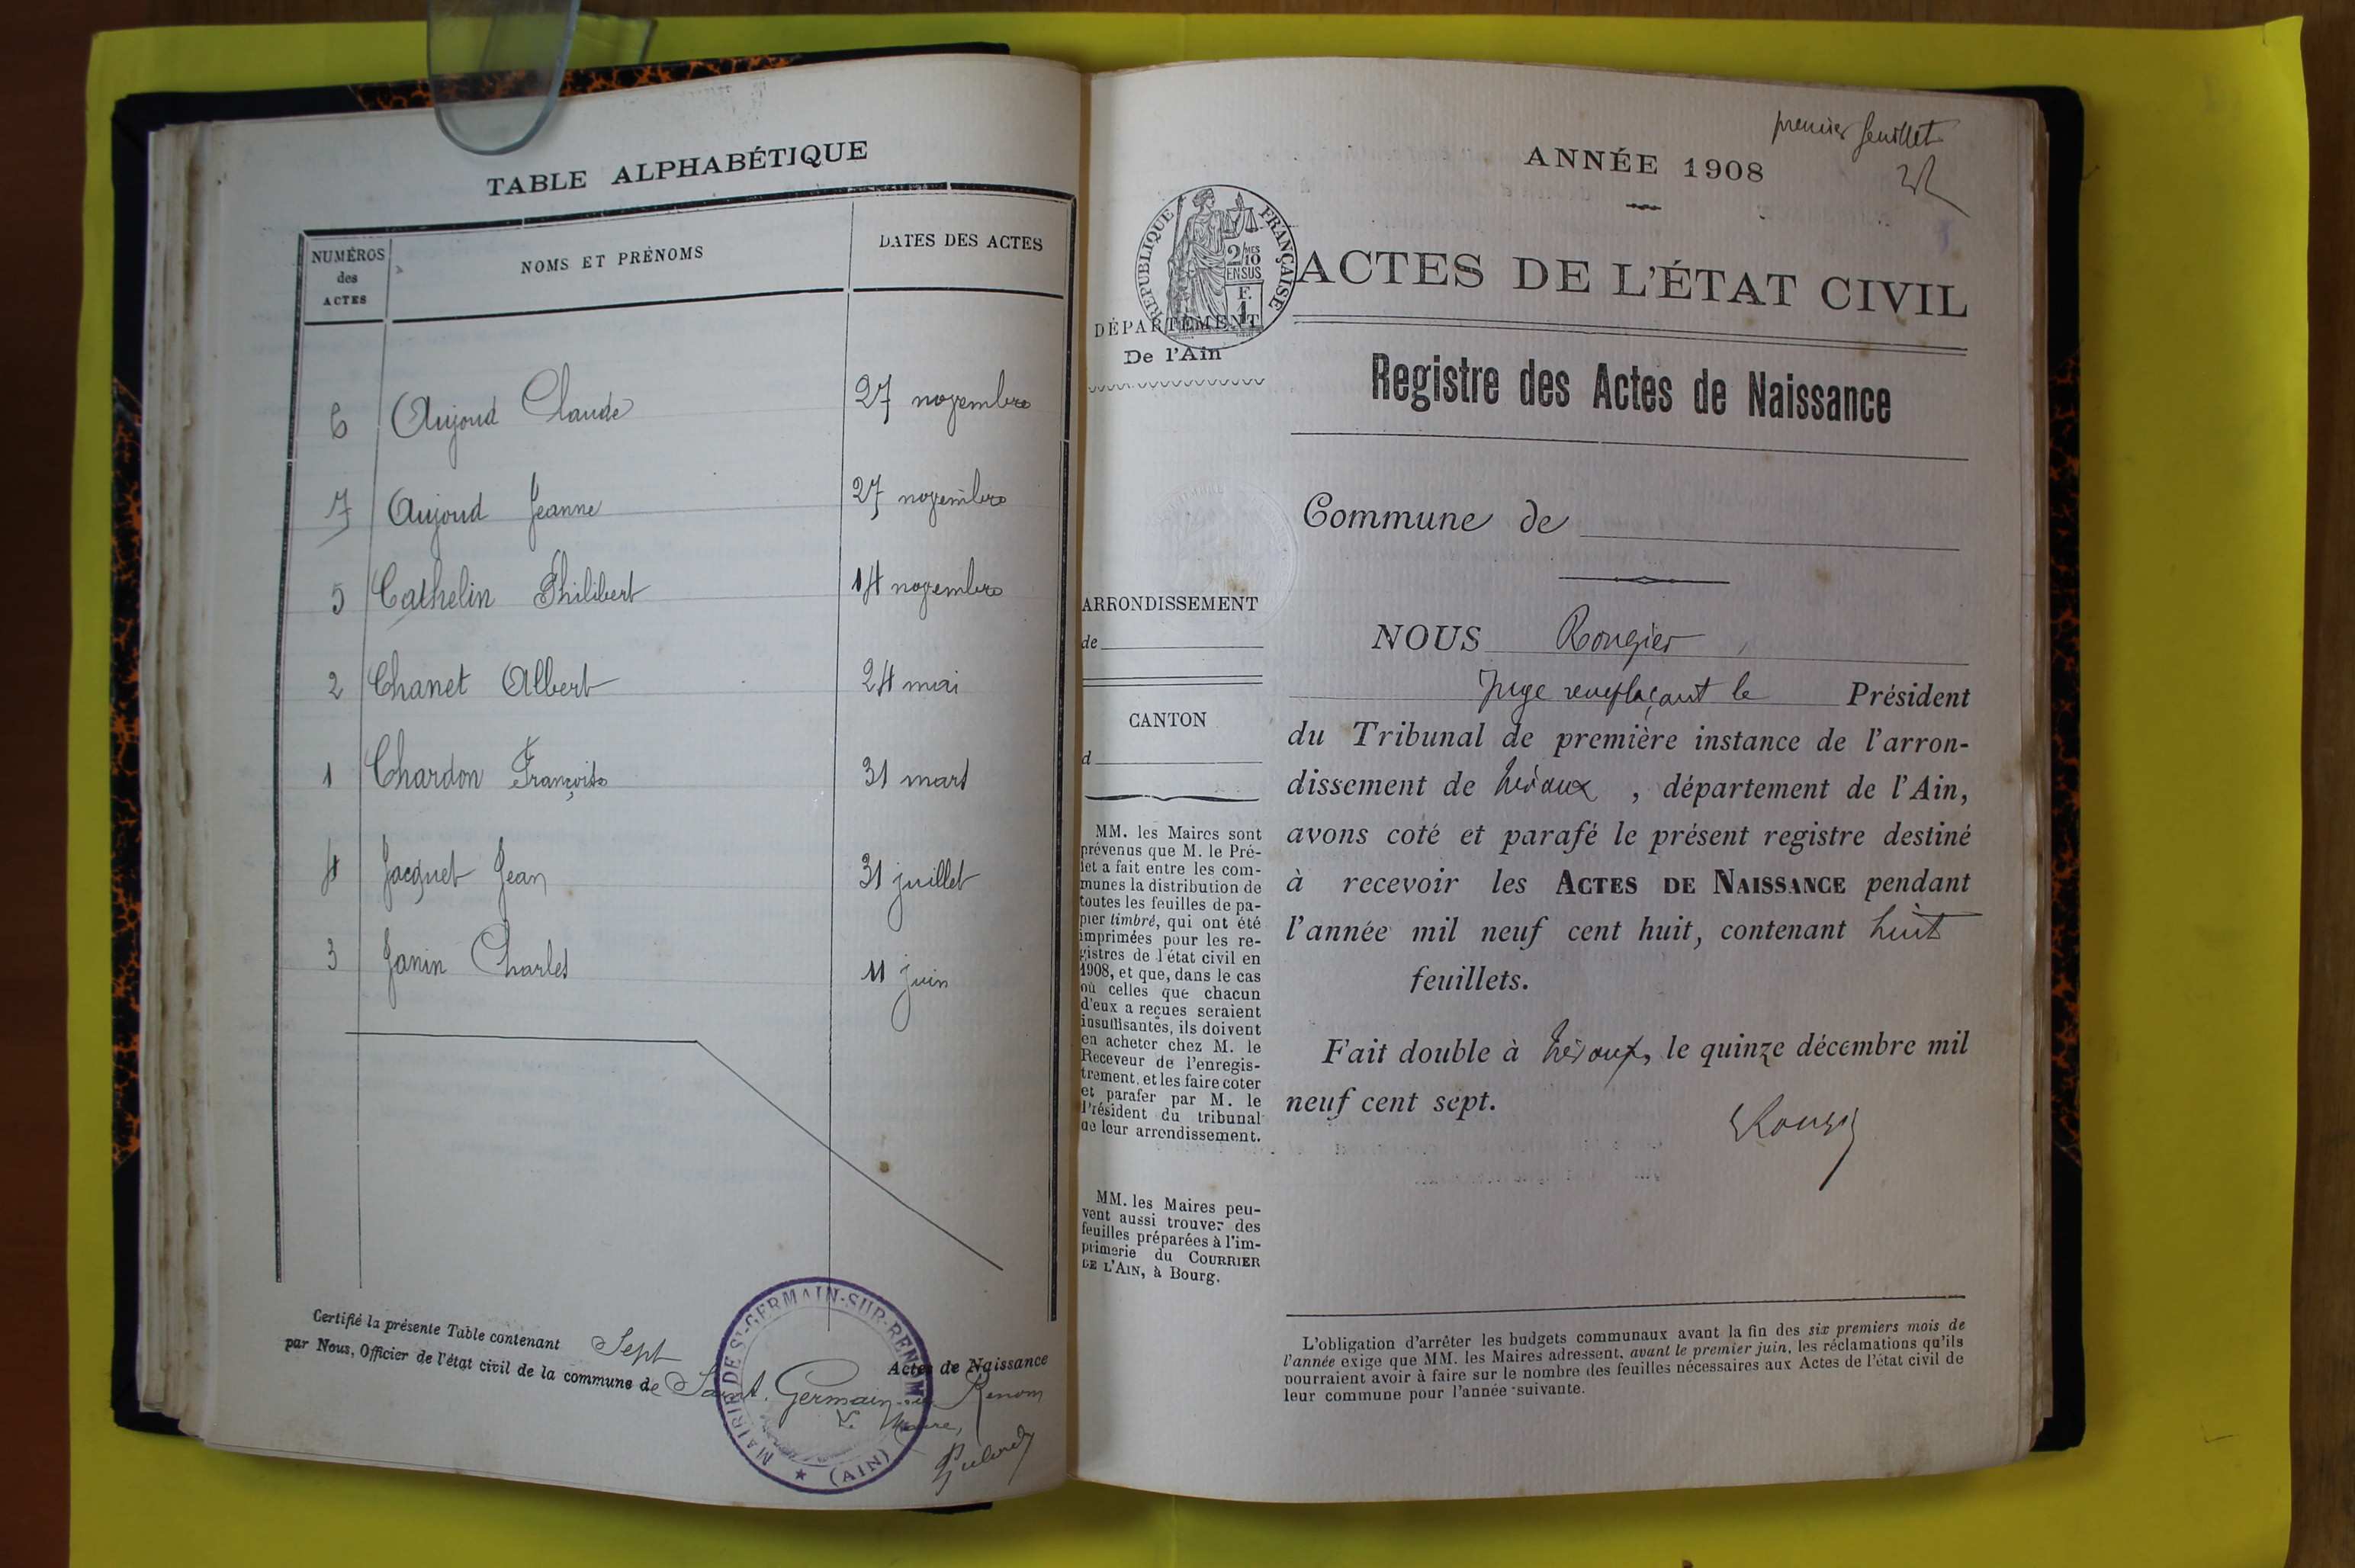 TABLE ALPHABÉTIQUE
NUMÉROS
des
ACTES
NOMS ET PRÉNOMS
DATES DES ACTES
6 Aujoud Claude 27 novembre
7 Aujoud Jeanne 27 novembre
5 Cathelin Philibert 14 novembre
2 Chanet Albert 24 mai
1 Chardon François 31 mars
4 Jacquet Jean 31 juillet
3 Janin Charles 11 juin
Certifié la présente Table contenant Sept Actes de Naissance
par Nous, Officier de l'état civil de la commune de Saint Germain-sur Renom
Le Maire,
MAIRIE DE ST-GERMAIN-SUR-RENOM
★ (AIN)
premier feuillet
ANNÉE 1908
RÉPUBLIQUE FRANÇAISE
2/10MES
EN SUS
F.
1
ACTES DE L'ÉTAT CIVIL
DÉPARTEMENT
De l'Ain
Registre des Actes de Naissance
Commune de
ARRONDISSEMENT
de
CANTON
d
MM. les Maires sont
prévenus que M. le Pré-
fet a fait entre les com-
munes la distribution de
toutes les feuilles de pa-
pier timbré, qui ont été
imprimées pour les re-
gistres de l'état civil en
1908, et que, dans le cas
où celles que chacun
d'eux a reçues seraient
insuffisantes, ils doivent
en acheter chez M. le
Receveur de l'enregis-
trement, et les faire coter
et parafer par M. le
Président du tribunal
de leur arrondissement.
MM. les Maires peu-
vent aussi trouver des
feuilles préparées à l'im-
primerie du COURRIER
DE L'AIN, à Bourg.
NOUS Rougier,
Juge remplaçant le Président
du Tribunal de première instance de l'arron-
dissement de Trévoux, département de l'Ain,
avons coté et parafé le présent registre destiné
à recevoir les ACTES DE NAISSANCE pendant
l'année mil neuf cent huit, contenant huit
feuillets.
Fait double à Trévoux, le quinze décembre mil
neuf cent sept.
Rougier
L'obligation d'arrêter les budgets communaux avant la fin des six premiers mois de
l'année exige que MM. les Maires adressent, avant le premier juin, les réclamations qu'ils
pourraient avoir à faire sur le nombre des feuilles nécessaires aux Actes de l'état civil de
leur commune pour l'année suivante.